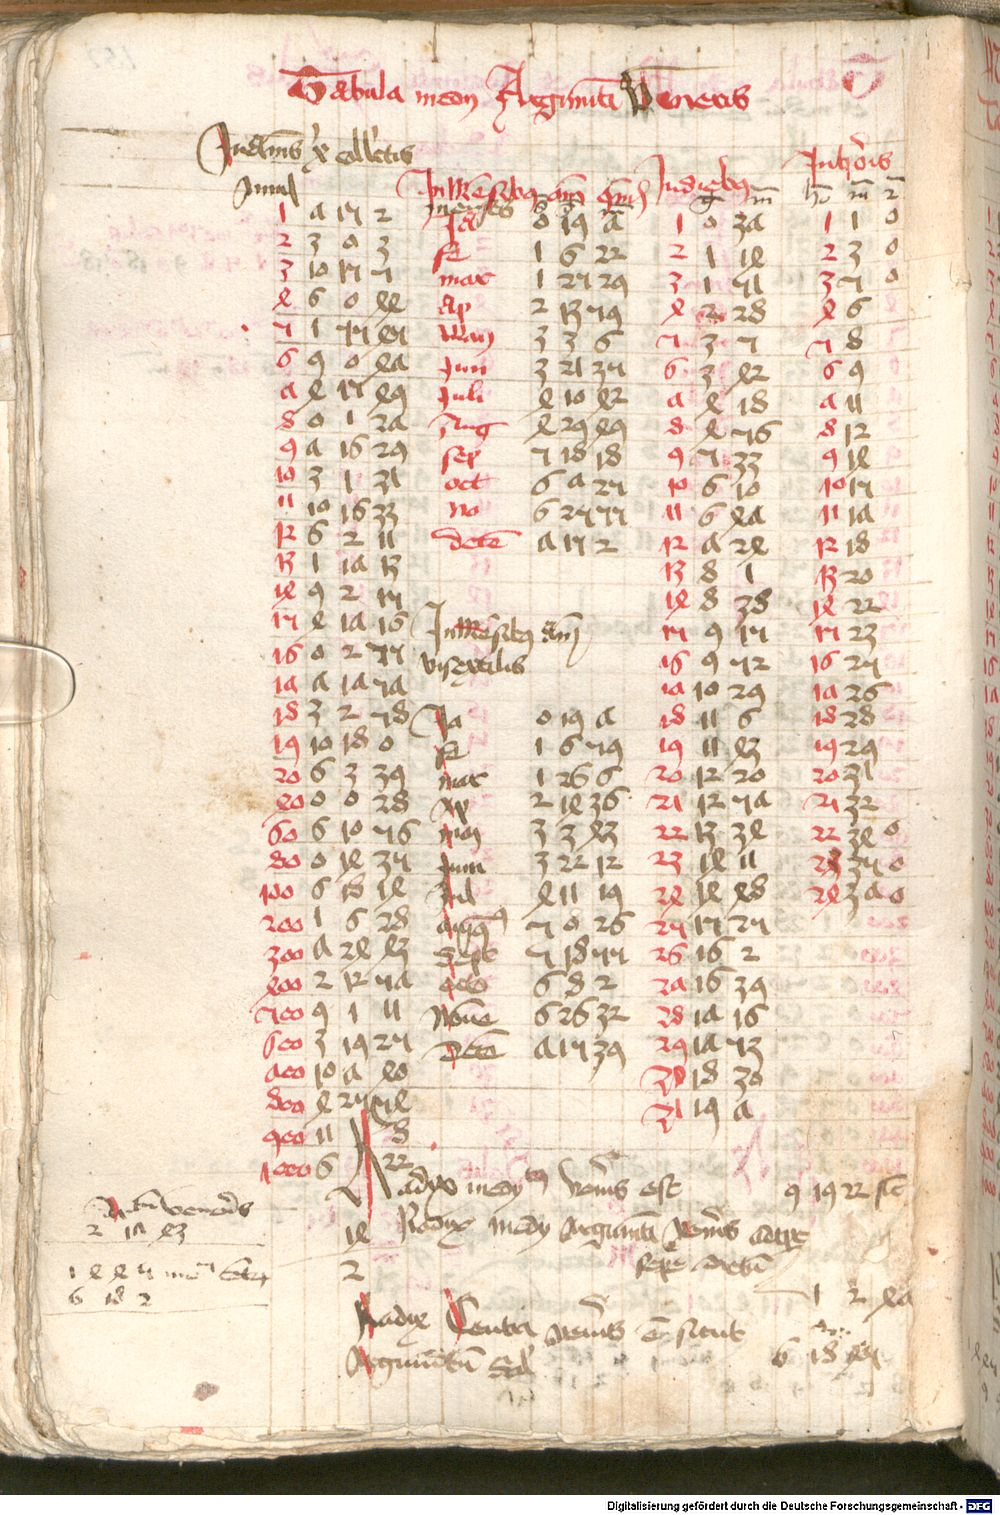 Tabula medij Argumenti Veneris
In annis expansis collectis
Anni
1 7 15 2
2 3 0 3
3 10 15 5
4 6 0 44
5 1 15 45
6 9 0 47
7 4 15 49
8 0 1 27
9 7 16 29
10 3 1 31
11 10 16 33
12 6 2 11
13 1 17 13
14 9 2 15
15 4 17 16
16 0 2 55
17 7 17 57
18 3 2 58
19 10 18 0
20 6 3 39
40 0 0 28
60 6 10 56
80 0 14 35
100 6 18 14
200 1 6 28
300 7 24 43
400 2 12 57
500 9 1 11
600 3 19 25
700 10 7 40
800 4 25 54
900 11 8
1000 6 22
In mensibus anni
menses
Ja 0 19 7
fe 1 6 22
mar 1 25 29
Ap 2 13 59
May 3 3 6
Jun 3 21 35
Juli 4 10 42
Aug 4 29 49
sep 5 18 18
oct 6 7 25
no 6 25 55
dece 7 15 2
In mensibus anni
bisextilis
Ja 0 19 7
fe 1 6 59
mar 1 26 6
Ap 2 14 36
may 3 3 43
Juni 3 22 12
Jul 4 11 19
augu 5 0 26
Sept 5 18 55
octo 6 8 2
Nove 6 26 32
Dece 7 15 39
In diebus
g m
1 0 37
2 1 14
3 1 51
4 2 28
5 3 5
6 3 42
7 4 18
8 4 56
9 5 33
10 6 10
11 6 47
12 7 24
13 8 1
14 8 38
15 9 15
16 9 52
17 10 29
18 11 6
19 11 43
20 12 20
21 12 57
22 13 34
23 14 11
24 14 48
25 15 25
26 16 2
27 16 39
28 17 16
29 17 53
30 18 30
31 19 7
In horis
ho m 2
1 1 0
2 3 0
3 5 0
4 6
5 8
6 9
7 11
8 12
9 14
10 15
11 17
12 18
13 20
14 22
15 23
16 25
17 26
18 28
19 29
20 31
21 32
22 34 0
23 35 0
24 37 0
Radix medij veneris est 9 19 22
14 Radix medij Argumenti veneris
2
1 2 47
Radix Centri veneris est sicut
Argumentum Solis 6 18 45
2 17 43
6 18 2
Digitalisierung gefördert durch die Deutsche Forschungsgemeinschaft - DFG